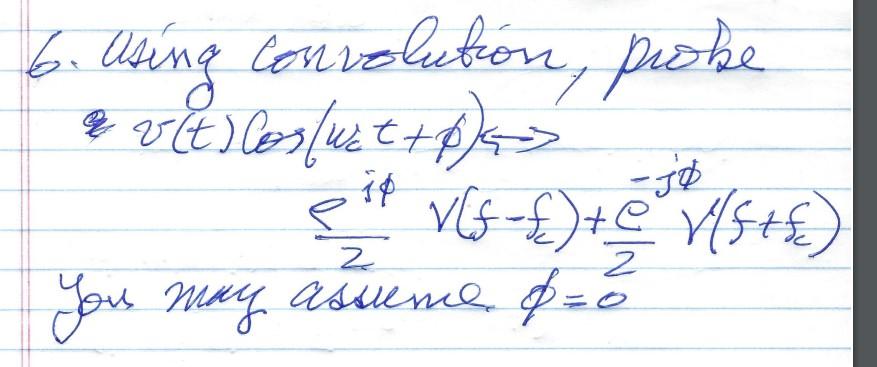 6. Using convolution, probe
v(t) Cos(w_c t + φ) ↔
e^{jφ}/2 V(f - f_c) + e^{-jφ}/2 V(f + f_c)
You may assume φ = 0